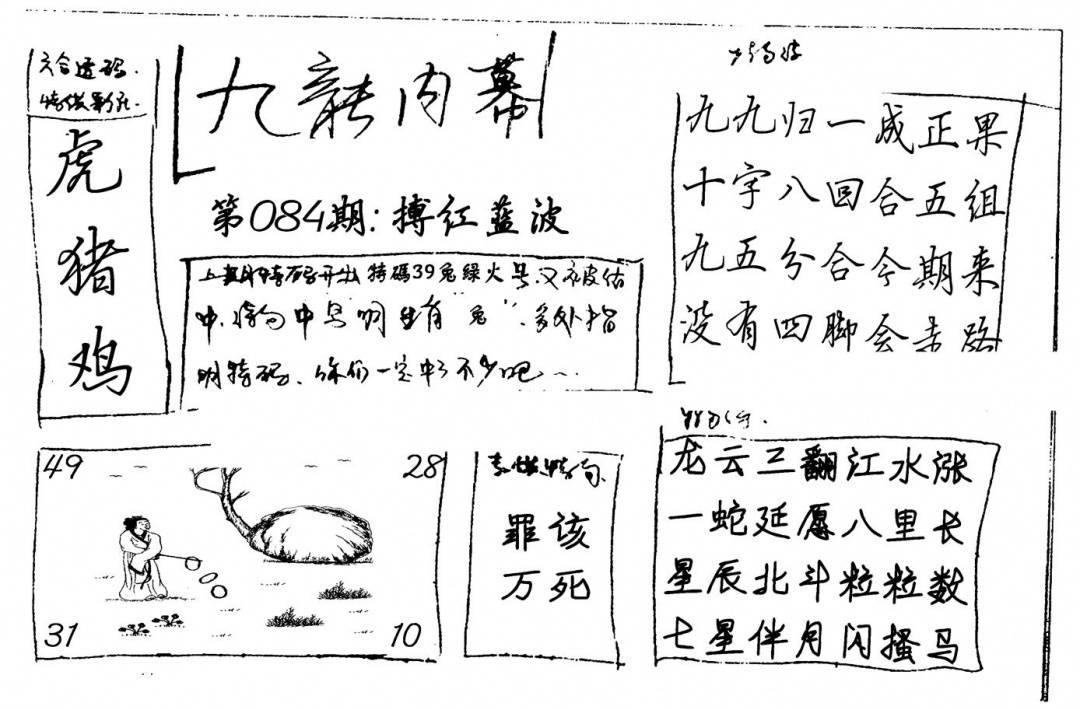 六合透码.
虎
猪
鸡
九龍内幕
第084期:搏红蓝波
上期特码开出特碼39兔绿火号又被估
中、中号明“兔”、多处指
明特码、你们一定中了不少吧
九九归一成正果
十字八回合五组
九五分合今期来
没有四脚会走路
49
28
31
10
罪该
万死
龙云三翻江水涨
一蛇延愿八里长
星辰北斗粒粒数
七星伴月闪搔马